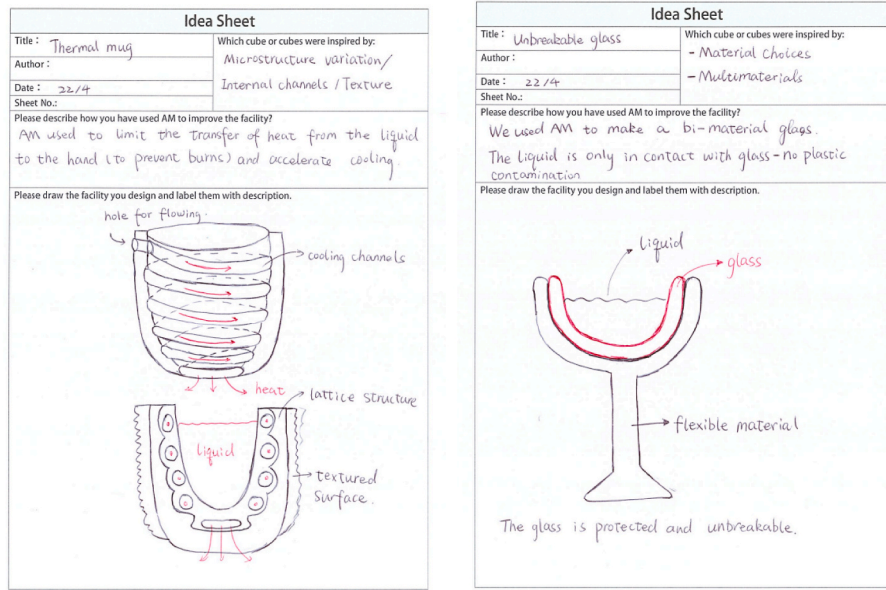 Idea Sheet
Title : Thermal mug
Which cube or cubes were inspired by:
Microstructure variation/
Internal channels / Texture
Author :
Date : 22/4
Sheet No.:
Please describe how you have used AM to improve the facility?
AM used to limit the transfer of heat from the liquid
to the hand (to prevent burns) and accelerate cooling.
Please draw the facility you design and label them with description.
hole for flowing.
cooling channels
heat
lattice structure
liquid
textured
surface.
Idea Sheet
Title : Unbreakable glass
Which cube or cubes were inspired by:
- Material choices
- Multimaterials
Author :
Date : 22/4
Sheet No.:
Please describe how you have used AM to improve the facility?
We used AM to make a bi-material glass.
The liquid is only in contact with glass - no plastic
contamination
Please draw the facility you design and label them with description.
liquid
glass
flexible material
The glass is protected and unbreakable.